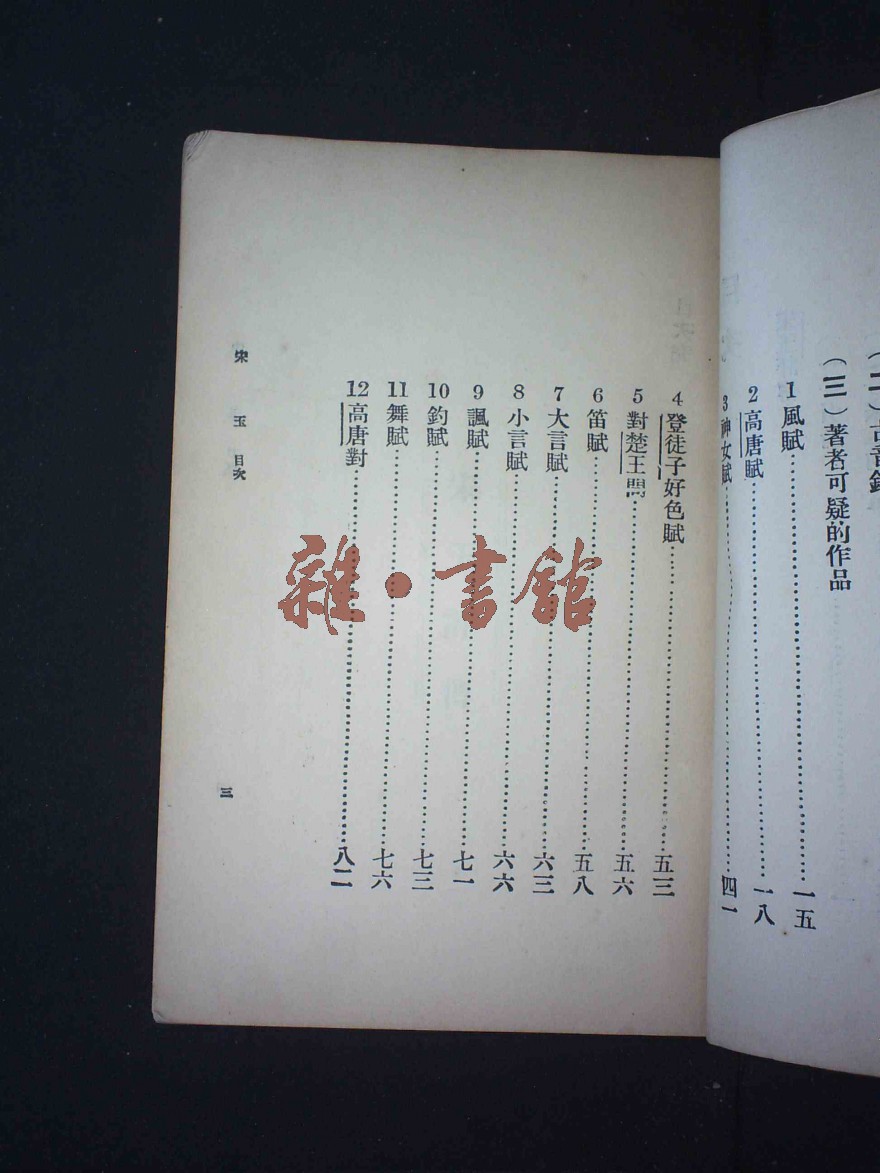 (三)著者可疑的作品
1 風賦……一五
2 高唐賦……一八
3 神女賦……四一
4 登徒子好色賦……五三
5 對楚王問……五六
6 笛賦……五八
7 大言賦……六三
8 小言賦……六六
9 諷賦……七一
10 釣賦……七三
11 舞賦……七六
12 高唐對……八二
宋玉 目次
三
雜·書館